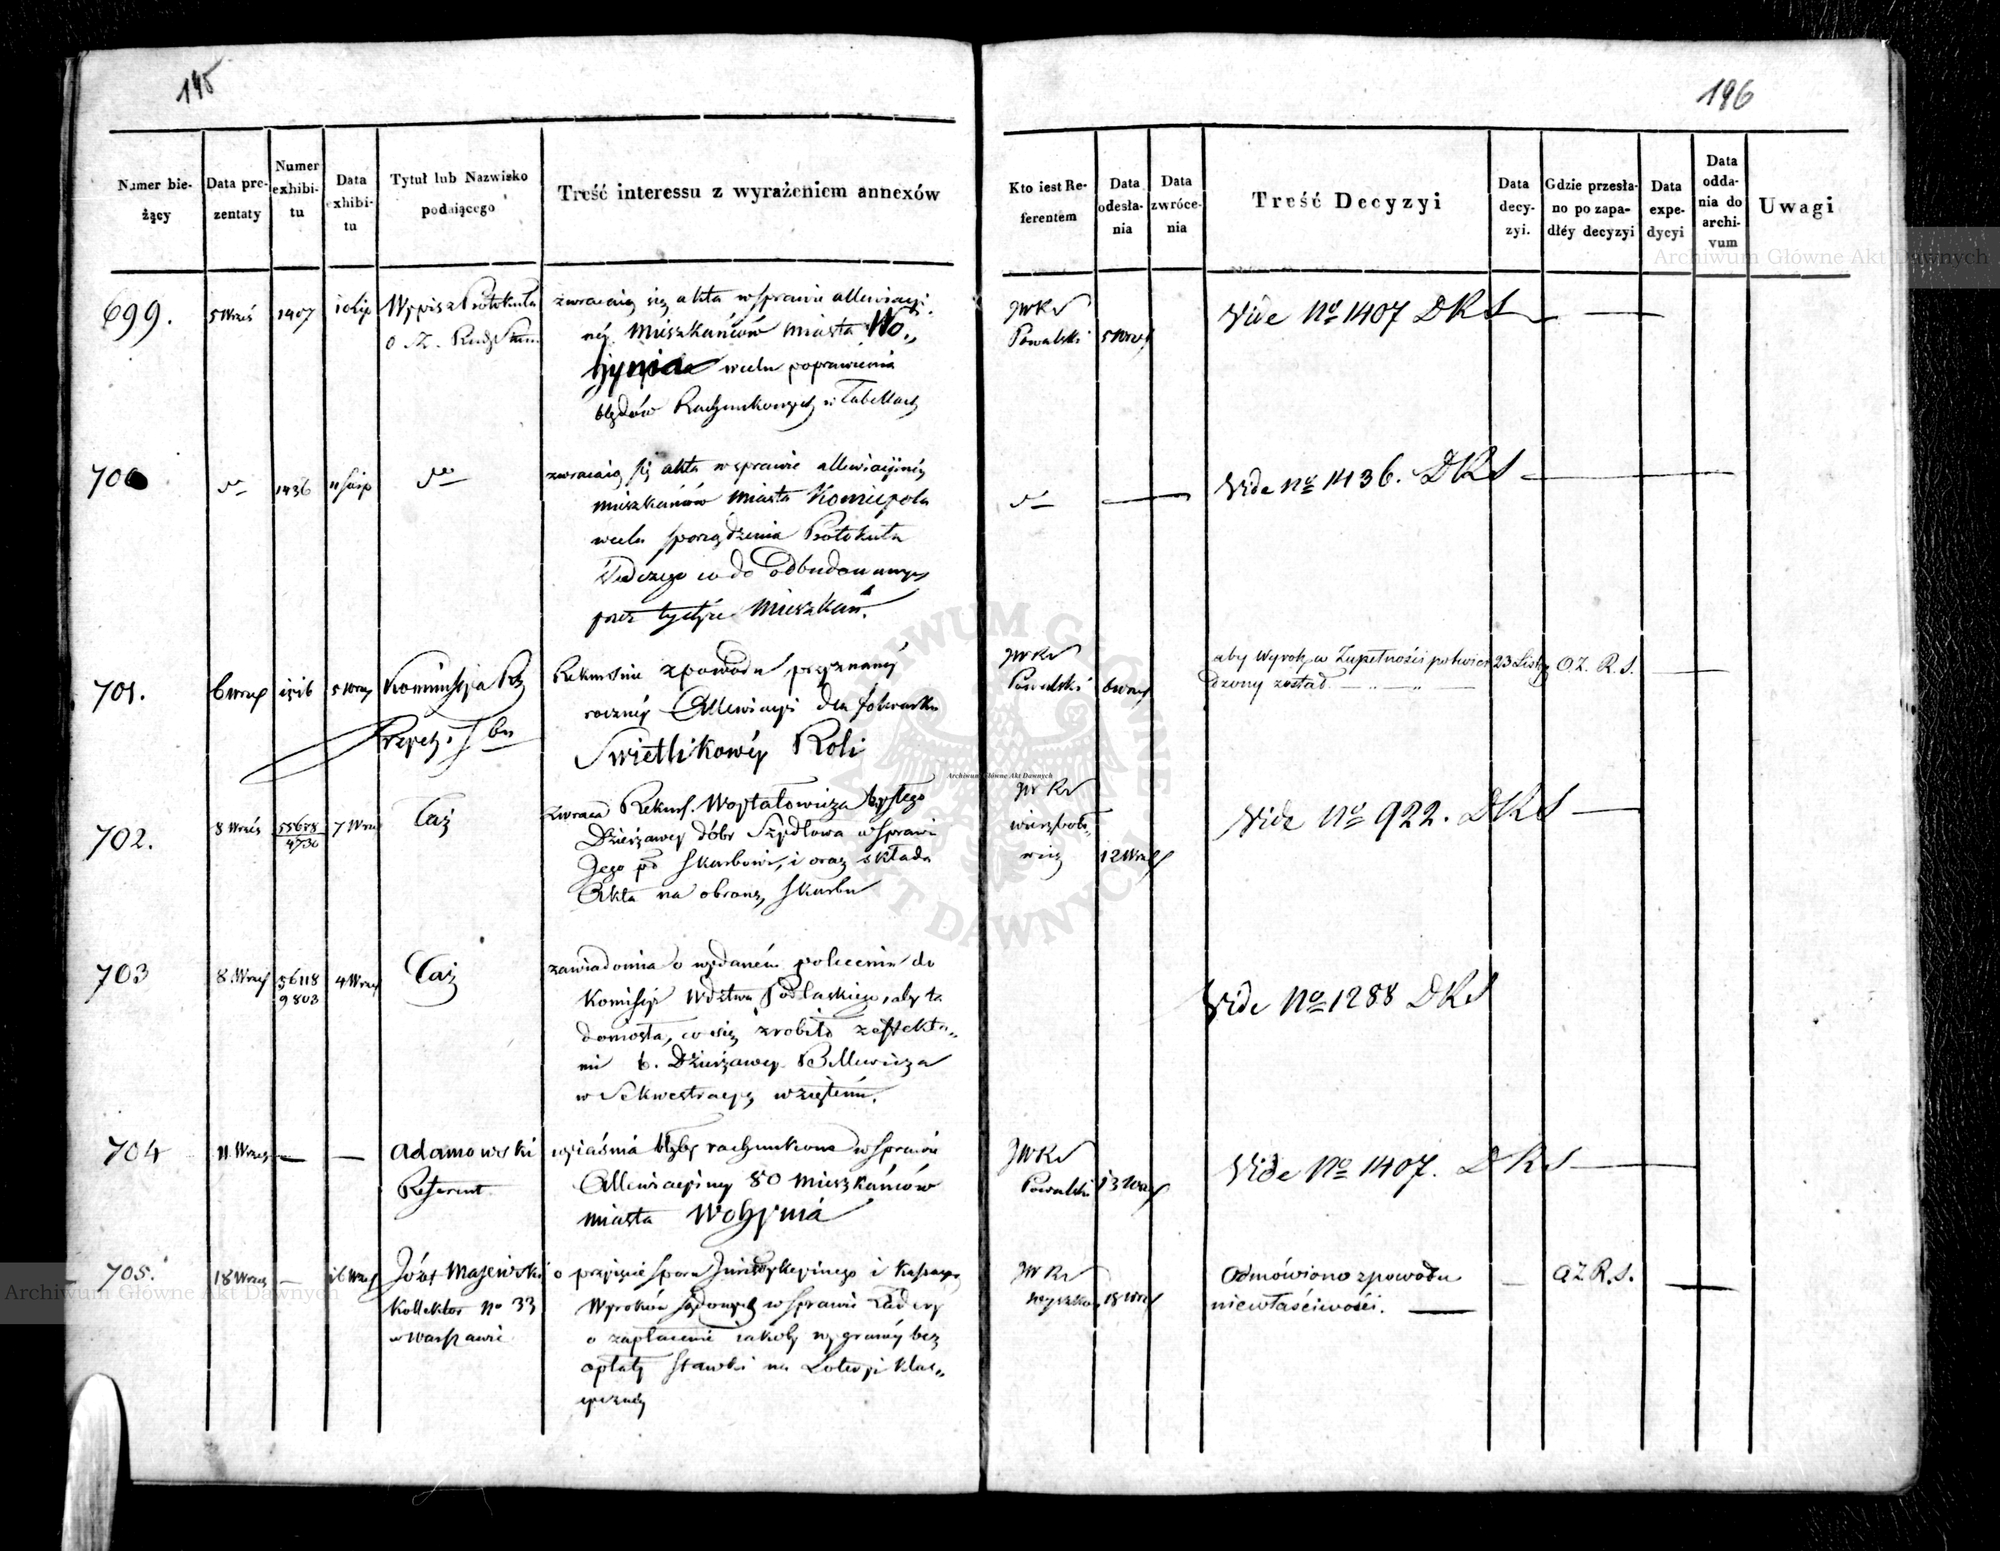 195
Numer bie-
żący
Data pre-
zentaty
Numer
exhibi-
tu
Data
exhibi-
tu
Tytuł lub Nazwisko
podaiącego
Treść interessu z wyrażeniem annexów
699.
5 Wrześ
1407
Wypis z Protokułu
zwracaią się akta w Sprawie allewiacyi
néy Mieszkańców Miasta Wo„
hynia wcelu poprawienia
błędów Rachunkowych w Tabellach
700
do
1436
11 Sierp
do
zwracaią się akta w sprawie allewiacyinéy
mieszkańców Miasta Koniecpola
wcelu sporządzenia Protokułu
Śledczego co do odbudowanych
przez tychże Mieszkań.
701.
6 Wrześ
1516
5 Wrześ
Kommissya Rz
Przych. i Sbu
Rekurs Jnie z powodu przyznanéy
rocznéy Allewiacyi dla folwarku
Swietlikowéy Roli
702.
8 Wrześ
55678
4730
7 Wrześ
Taż
zwraca Rekurs. Woytatowicza byłego
Dzierżawcy dóbr Szydłowa w Sprawie
Jego po Skarbowi, i oraz składa
Akta na obronę Skarbu
703
8 Wrześ
56118
9803
4 Wrześ
Taż
zawiadomia o wydaném poleceniu do
Komissyi Wdztwa Podlaskiego, aby ta
doniosła, co się zrobiło z effekta„
mi b. Dzierżawcy Billewicza
w Sekwestracyą wziętemi.
704
11 Wrześ
—
—
Adamowski
Referent.
wyiaśnia błędy rachunkowe w Sprawie
Allewiacyiney 80 Mieszkańców
Miasta Wohynia
705.
18 Wrześ
—
16 Wrześ
Józef Majewski
Kollektor No 33
w Warszawie
o przyięcie Sporu Jurisdykcyinego i Kassacyą
Wyroków sądowych w Sprawie
o zapłacenie iakoby wygranéy bez
opłaty Stawki na Loteryi Klas„
syczney
196
Kto iest Re-
ferentem
Data
odesła-
nia
Data
zwróce-
nia
Treść Decyzyi
Data
decy-
zyi.
Gdzie przesła-
no po zapa-
dłéy decyzyi
Data
expe-
dycyi
Data
odda-
nia do
archi-
vum
Uwagi
JWRS
Powalski
5 Wrześ
Vide No 1407 DRS
do
Vide No 1436. DRS
JWRS
Powalski
6 Wrześ
aby Wyrok w Zupełności potwier
dzony został.
23 Listp
OZ. R. S.
JWRS
12 Wrześ
Vide No 922. DRS
Vide No 1288 DRS
JWRS
Powalski
13 Wrześ
Vide No 1407. DRS
JWRS
18 Wrześ
Odmówiono z powodu
niewłaściwości.
OZ. R. S.
Archiwum Główne Akt Dawnych
Archiwum Główne Akt Dawnych
Archiwum Główne Akt Dawnych
ARCHIWUM GŁÓWNE AKT DAWNYCH